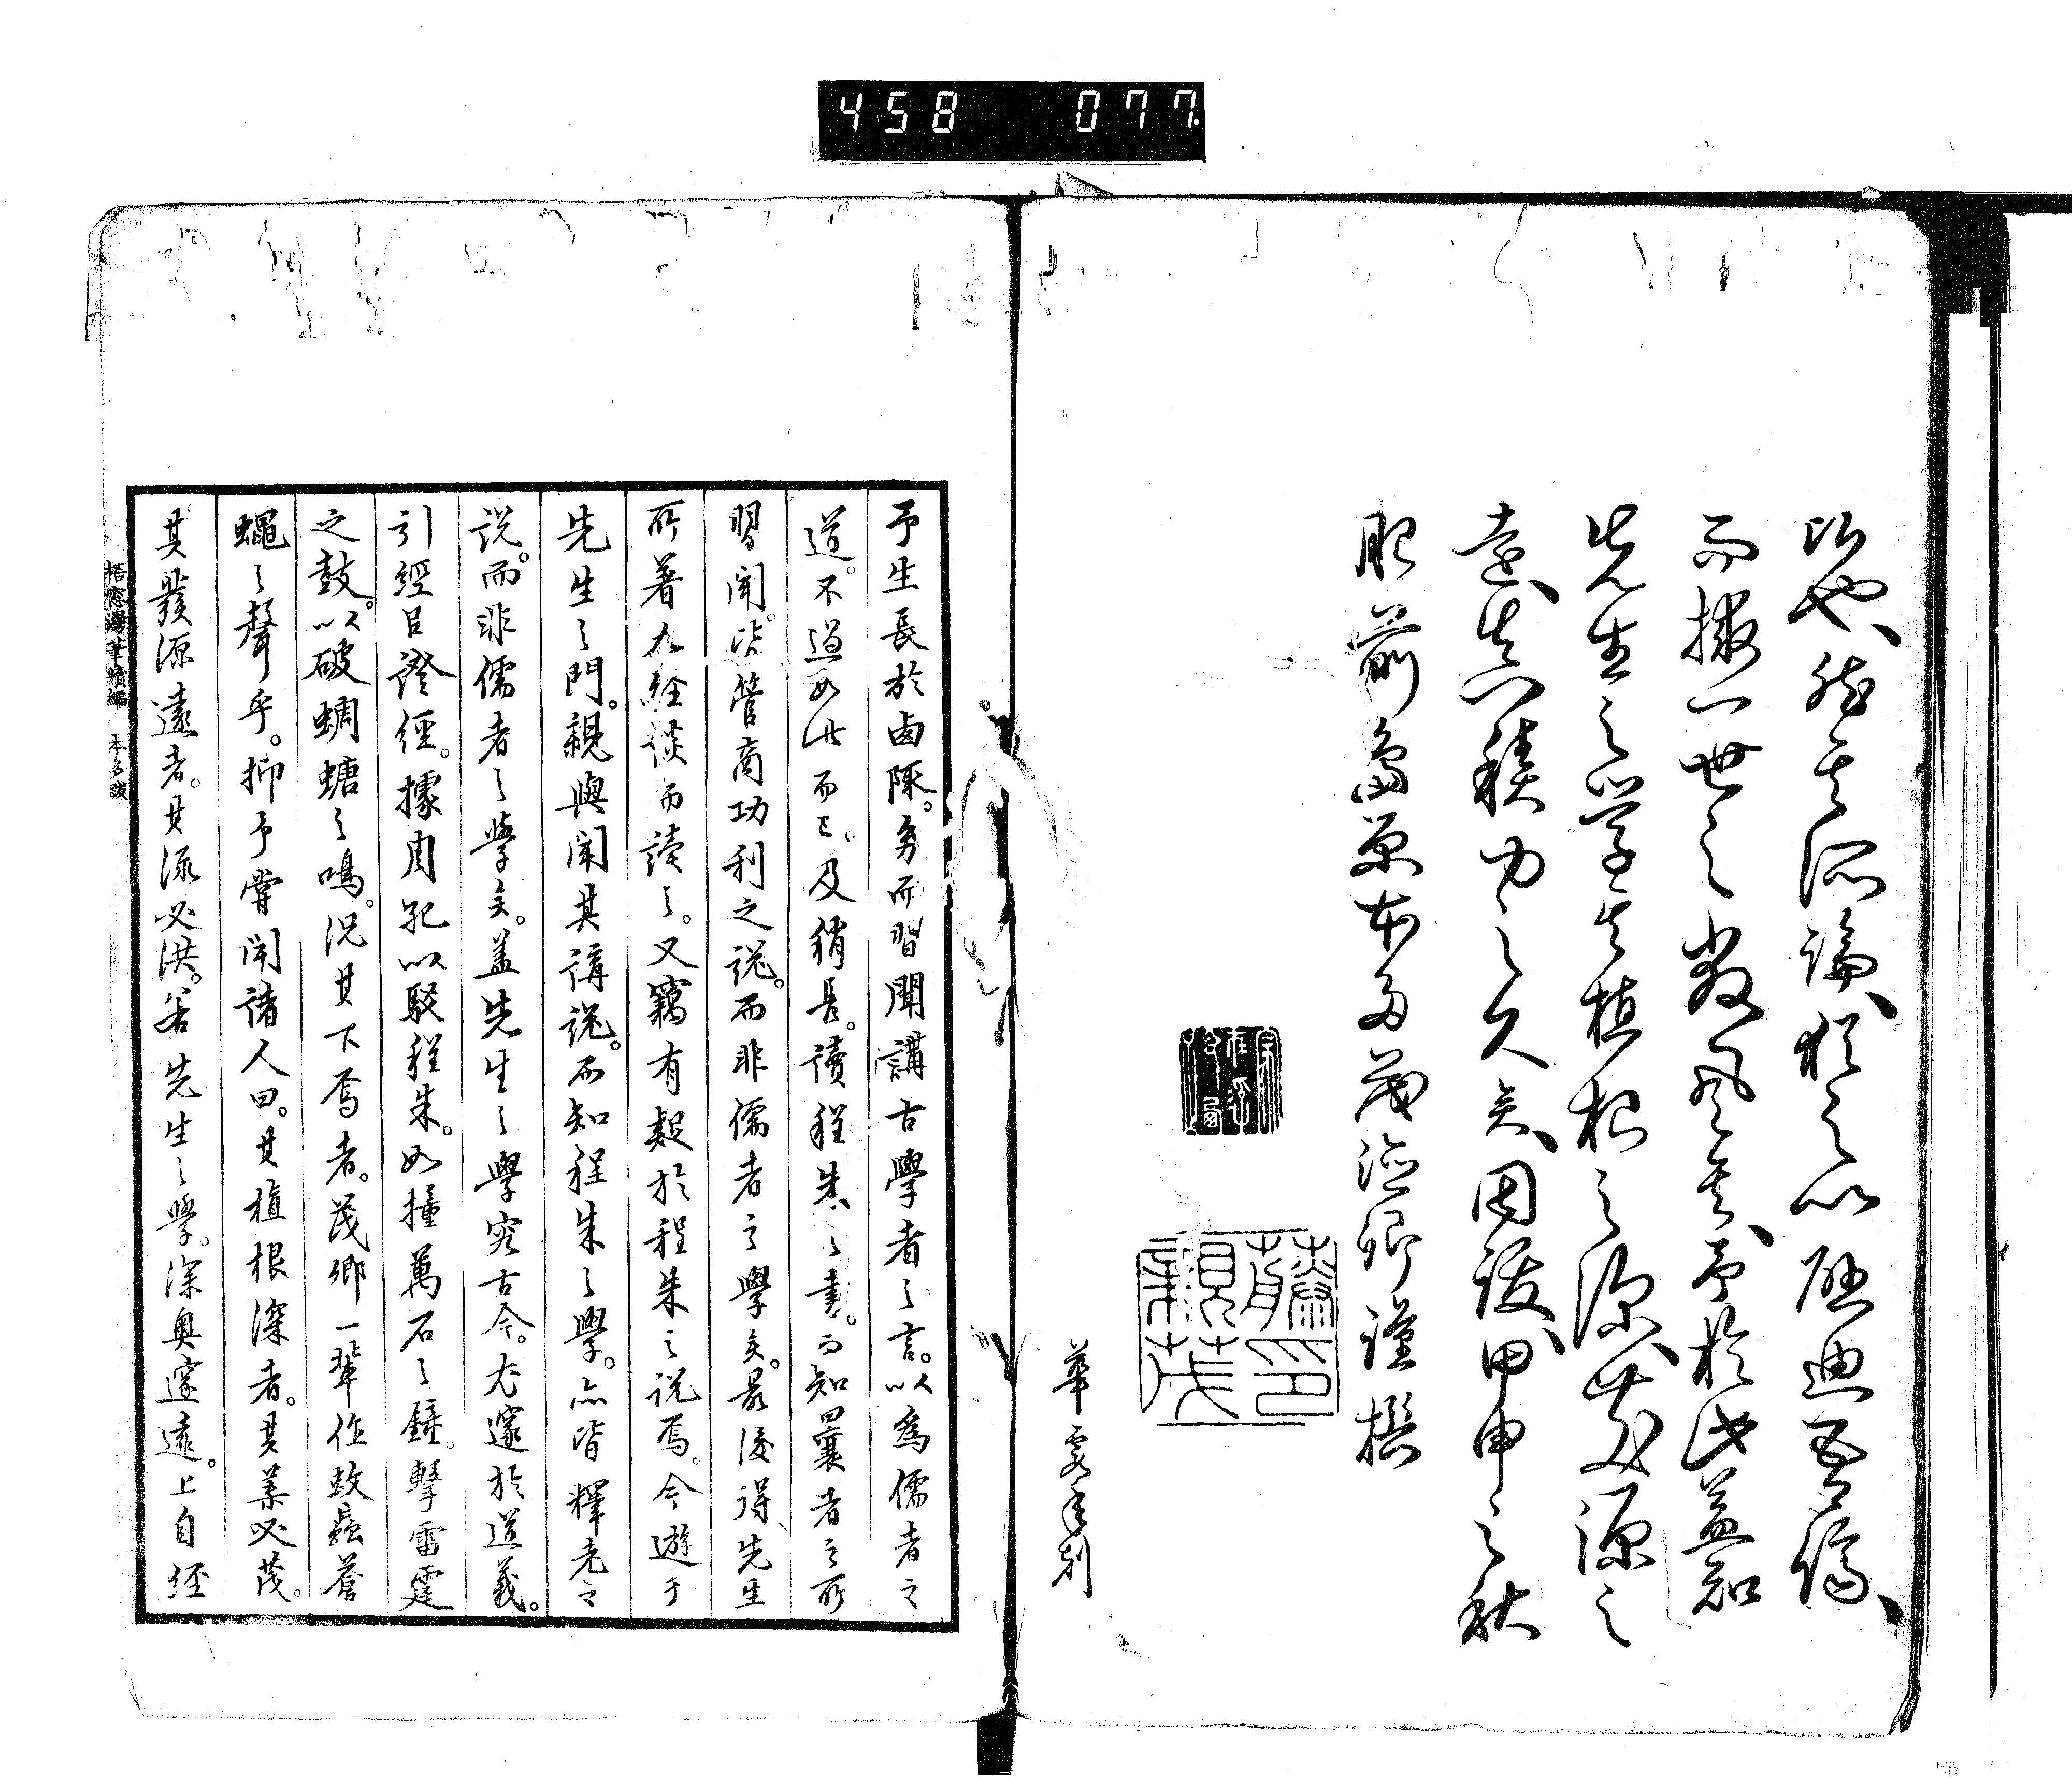 458 077
所也、然其所論、猶足以啓迪吾儕、
而撥一世之敝風矣、予於此益知
先生之學其植根之深、其發源之
遠、真積力之久矣、因跋、甲申之秋
肥前島原本多茂 卿謹撰
予生長於鹵陬。身而習聞講古學者之言。以為儒者之
道。不過如此而已。及稍長。讀程朱之書。而知曩者之所
習聞。皆管商功利之說。而非儒者之學矣。最後得先生
所著九經談而讀之。又竊有疑於程朱之說焉。今遊于
先生之門。親與聞其講說。而知程朱之學。亦皆釋老之
說。而非儒者之學矣。蓋先生之學究古今。尤邃於道義。
引經以證經。據周孔以駁程朱。如撞萬石之鐘。擊雷霆
之鼓。以破蜩螗之鳴。況其下焉者。茂卿一輩作蚊蝱蒼
蠅之聲乎。抑予嘗聞諸人曰。其植根深者。其葉必茂。
其發源遠者。其流必洪。若先生之學。深奧邃遠。上自經
梧窓漫筆續編 本多跋